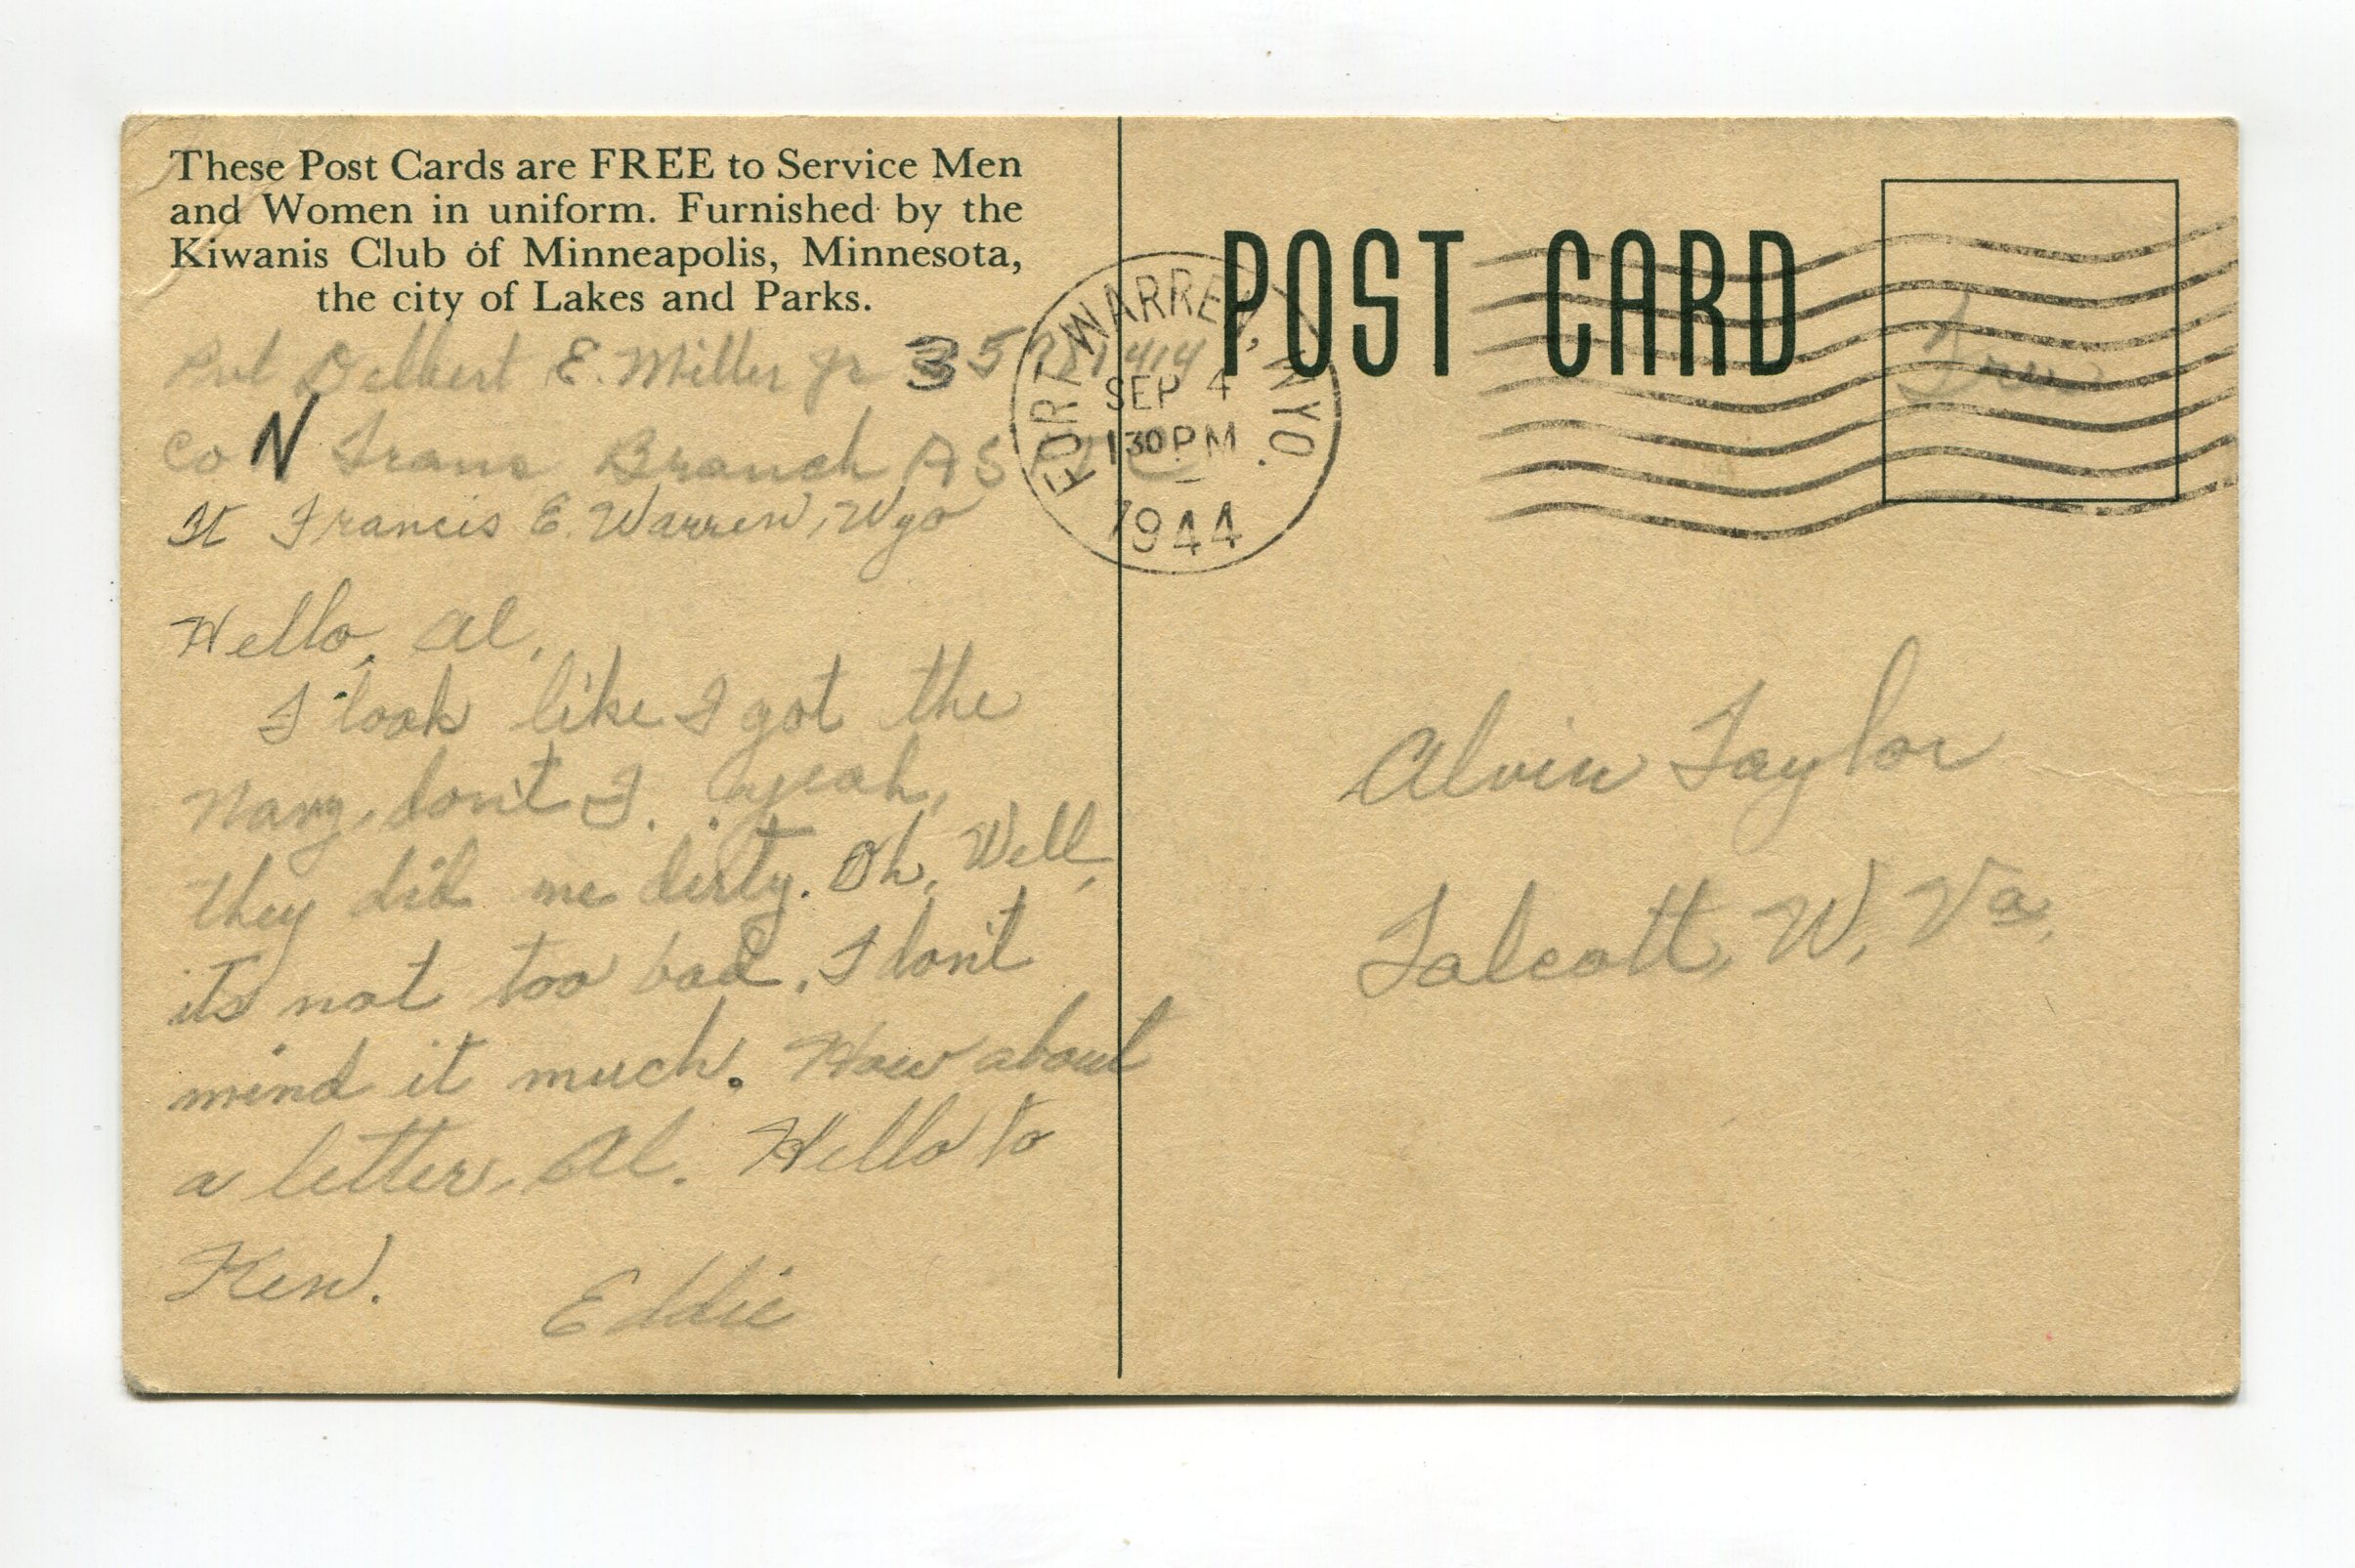 These Post Cards are FREE to Service Men
and Women in uniform. Furnished by the
Kiwanis Club of Minneapolis, Minnesota,
the city of Lakes and Parks.
Pvt Delbert E. Miller Jr
Co N Trans Branch AS
Ft Francis E. Warren, Wyo
Hello, Al,
I look like I got the
Navy, don't I. yeah,
they did me dirty. Oh, Well,
its not too bad. I don't
mind it much. How about
a letter, Al. Hello to
Ken.
Eddie
FORT WARREN, WYO.
SEP 4
130 PM
1944
POST CARD
Free
Alvin Taylor
Talcott, W. Va.